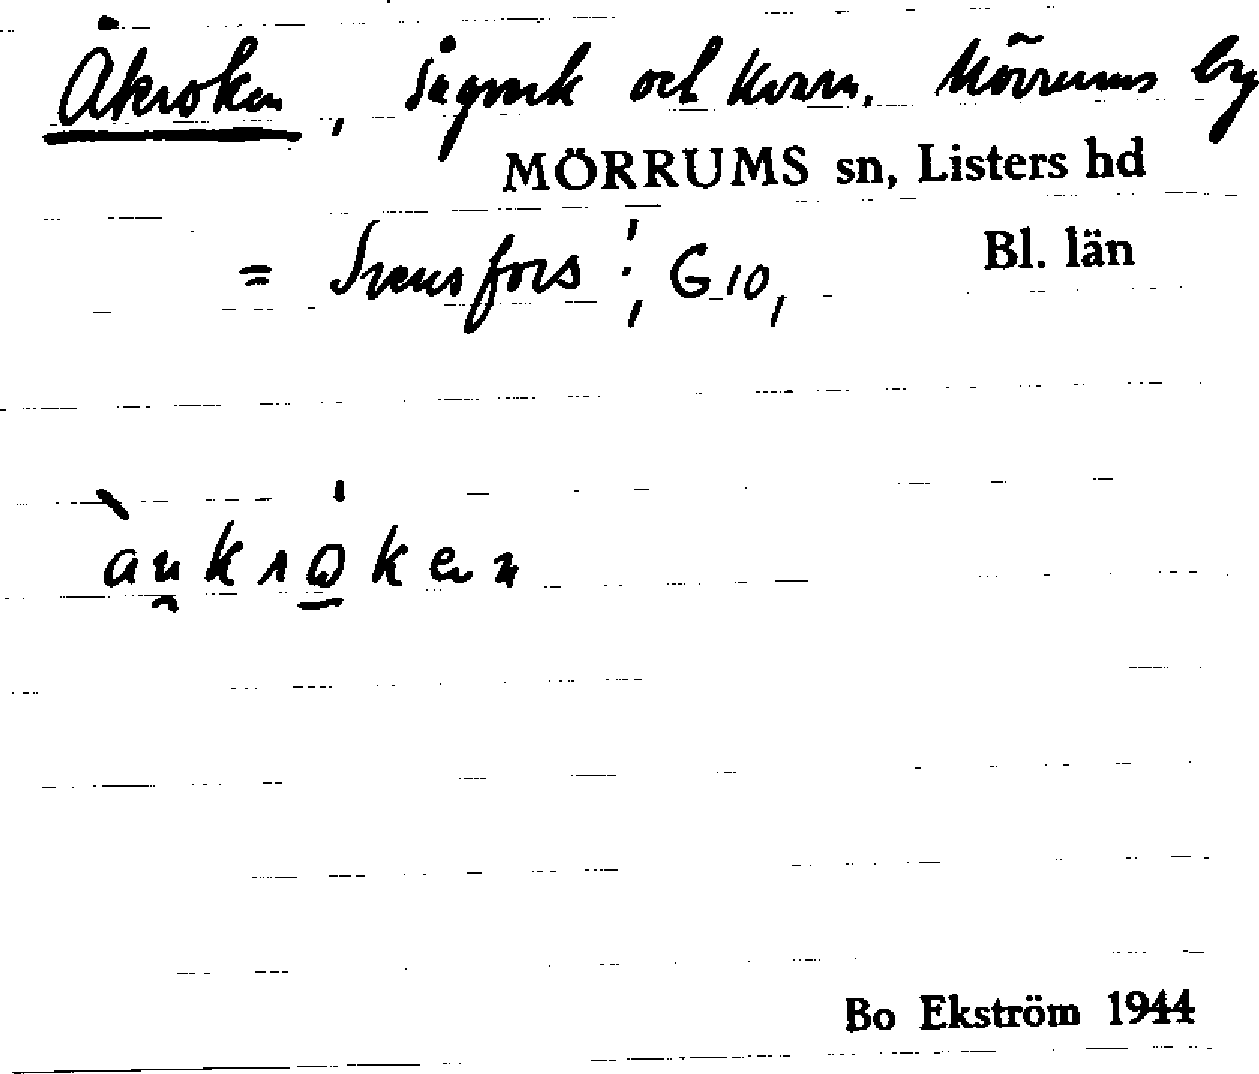 Åkroken, Sågverk och kvarn. Mörrums by
MÖRRUMS sn, Listers hd
= Svensfors !, G 10,
Bl. län
au̯krọken
Bo Ekström 1944